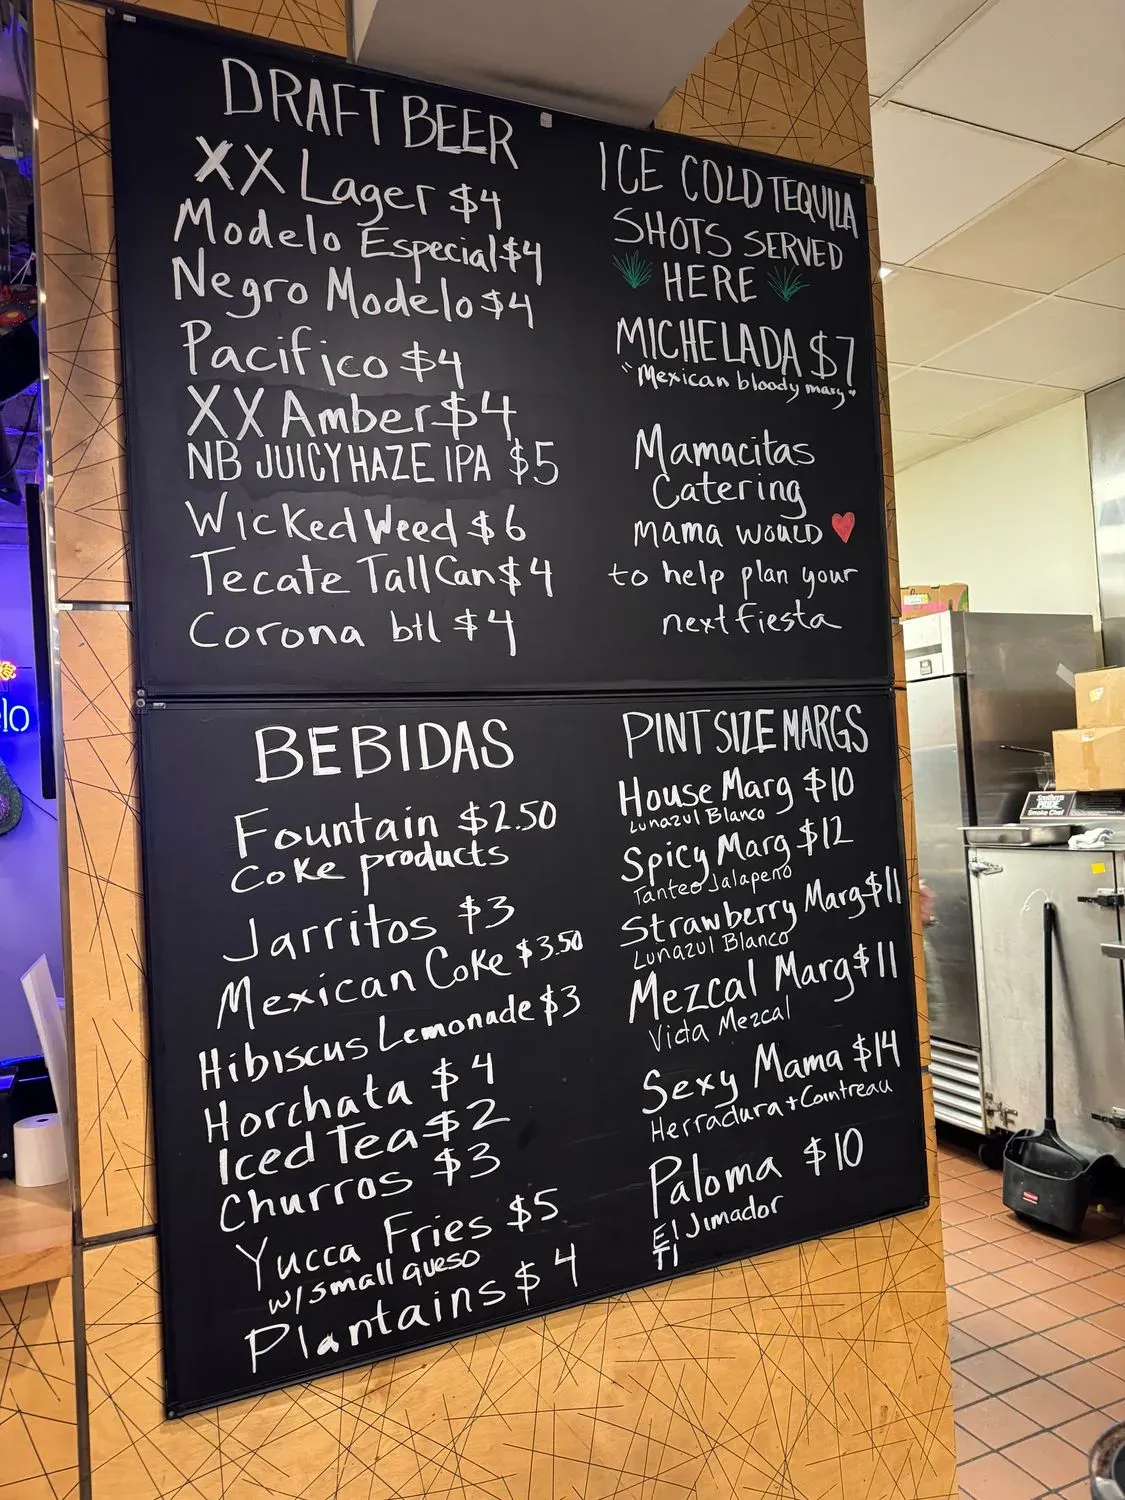 DRAFT BEER
XX Lager $4
Modelo Especial $4
Negro Modelo $4
Pacifico $4
XX Amber $4
NB JUICY HAZE IPA $5
Wicked Weed $6
Tecate Tall Can $4
Corona btl $4
ICE COLD TEQUILA
SHOTS SERVED
HERE
MICHELADA $7
"Mexican bloody mary"
Mamacitas
Catering
mama would
to help plan your
next fiesta
BEBIDAS
Fountain $2.50
Coke products
Jarritos $3
Mexican Coke $3.50
Hibiscus Lemonade $3
Horchata $4
Iced Tea $2
Churros $3
Yucca Fries $5
w/small queso
Plantains $4
PINT SIZE MARGS
House Marg $10
Lunazul Blanco
Spicy Marg $12
Tanteo Jalapeno
Strawberry Marg $11
Lunazul Blanco
Mezcal Marg $11
Vida Mezcal
Sexy Mama $14
Herradura + Cointreau
Paloma $10
El Jimador
TI
lo
Southern
PRIDE
Smoke Chef